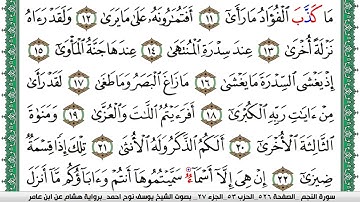 مَا كَذَّبَ ٱلْفُؤَادُ مَا رَأَىٰٓ ١١ أَفَتُمَٰرُونَهُۥ عَلَىٰ مَا يَرَىٰ ١٢ وَلَقَدْ رَءَاهُ
نَزْلَةً أُخْرَىٰ ١٣ عِندَ سِدْرَةِ ٱلْمُنتَهَىٰ ١٤ عِندَهَا جَنَّةُ ٱلْمَأْوَىٰٓ ١٥
إِذْ يَغْشَى ٱلسِّدْرَةَ مَا يَغْشَىٰ ١٦ مَا زَاغَ ٱلْبَصَرُ وَمَا طَغَىٰ ١٧ لَقَدْ رَأَىٰ
مِنْ ءَايَٰتِ رَبِّهِ ٱلْكُبْرَىٰٓ ١٨ أَفَرَءَيْتُمُ ٱللَّٰتَ وَٱلْعُزَّىٰ ١٩ وَمَنَوٰةَ
ٱلثَّالِثَةَ ٱلْأُخْرَىٰٓ ٢٠ أَلَكُمُ ٱلذَّكَرُ وَلَهُ ٱلْأُنثَىٰ ٢١ تِلْكَ إِذًا قِسْمَةٌ
ضِيزَىٰٓ ٢٢ إِنْ هِىَ إِلَّآ أَسْمَآءٌ سَمَّيْتُمُوهَآ أَنتُمْ وَءَابَآؤُكُم مَّآ أَنزَلَ
سورة النجم_الصفحة ٥٢٦_الحزب ٥٣_الجزء ٢٧_بصوت الشيخ يوسف نوح احمد_برواية هشام عن ابن عامر